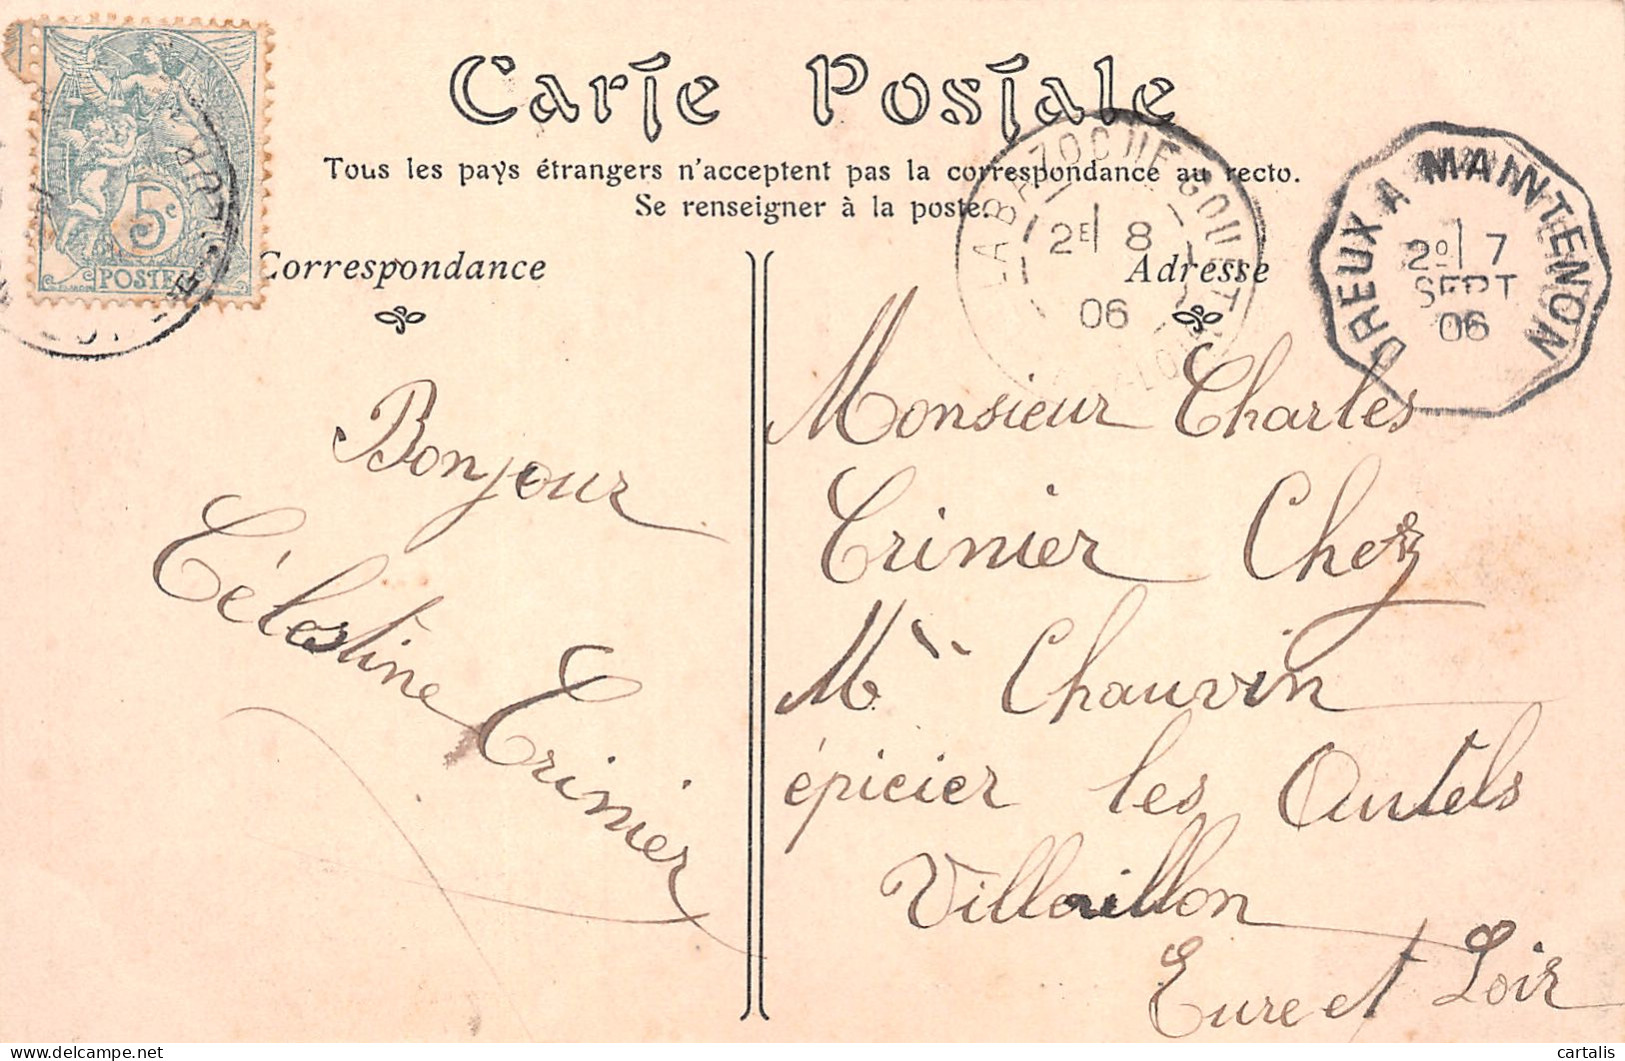 Carte Postale
Tous les pays étrangers n'acceptent pas la correspondance au recto.
Se renseigner à la poste.
Correspondance
Adresse
5c
POSTE
LA BAZOCHE GOUET
2E 8
06
DREUX A MAINTENON
2º 7
SEPT
06
Bonjour
Célestine Trinier
Monsieur Charles
Trinier Chez
Mr Chauvin
épicier les Autels
Villevillon
Eure et Loir
cartalis